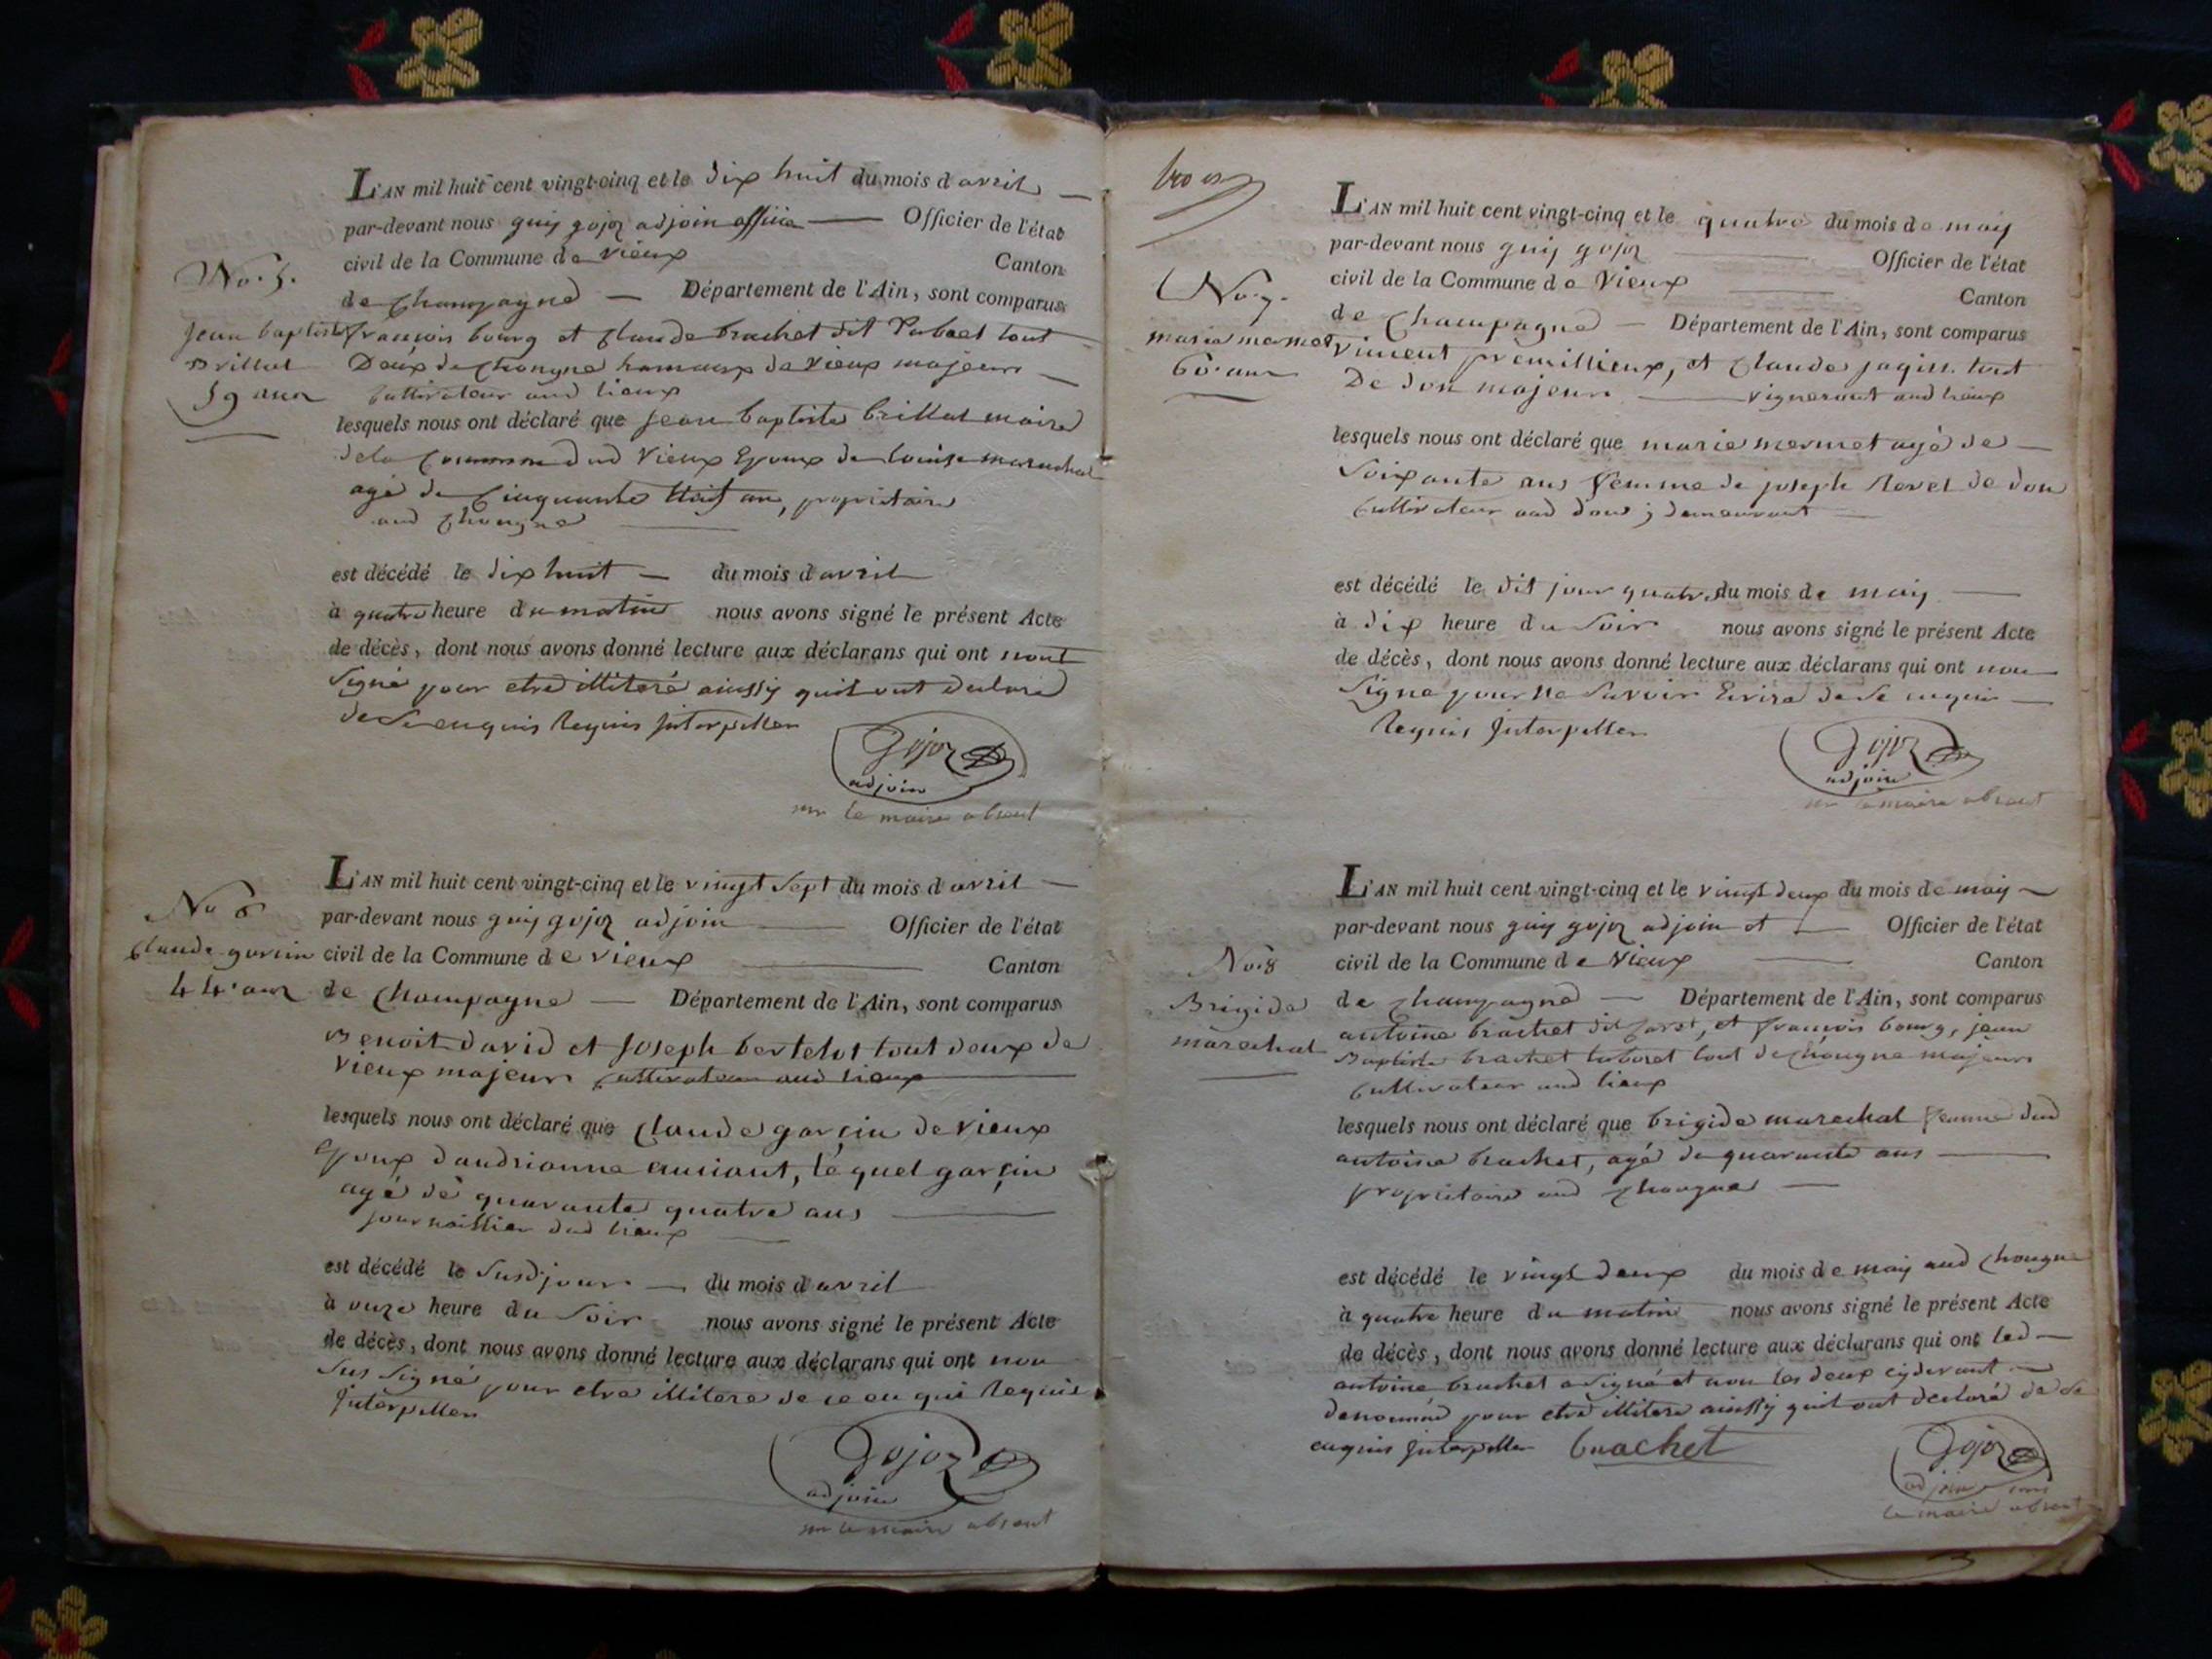 L'AN mil huit cent vingt-cinq et le dix huit du mois d avril
par-devant nous guy gojoz adjoin Officier de l'état
civil de la Commune de vieux Canton
de Champagne Département de l'Ain, sont comparus
francois bourg et Claude brachet dit tout
Deux de chongne de vieux majeurs
Cultivateur aud lieux
lesquels nous ont déclaré que jean baptiste brillat maire
dela Commune dud Vieux Epoux de louise marechal
agé de Cinquante an, propriétaire
aud Chongne
est décédé le dix huit du mois d avril
à quatre heure du matin nous avons signé le présent Acte
de décès, dont nous avons donné lecture aux déclarans qui ont nont
signé pour etre illiteré ainssy quil ont declaré
de Se enquis Requis Interpeller
Gojoz
adjoin
le maire absent
No. 5.
jean baptiste
Brillat
59 ans
L'AN mil huit cent vingt-cinq et le vingt sept du mois d avril
par-devant nous guy gojoz adjoin Officier de l'état
civil de la Commune de vieux Canton
de Champagne Département de l'Ain, sont comparus
Benoit david et Joseph bertelot tout deux de
Vieux majeurs Cultivateur aud lieux
lesquels nous ont déclaré que Claude garcin de vieux
Epoux dandrianne anciant, lequel garcin
agé de quarante quatre ans
journaillier dud lieux
est décédé le Susd. jour du mois d avril
à onze heure du Soir nous avons signé le présent Acte
de décès, dont nous avons donné lecture aux déclarans qui ont non
Sus Signé pour etre illitere de ce en quis Requis
Interpeller
Gojoz
adjoin
le maire absent
No 6
Claude garcin
44 ans
L'AN mil huit cent vingt-cinq et le quatre du mois de may
par-devant nous guy gojoz Officier de l'état
civil de la Commune de Vieux Canton
de Champagne Département de l'Ain, sont comparus
Vincent premillieux, et Claude jagin tout
De don majeurs vigneront aud lieux
lesquels nous ont déclaré que marie mermet agé de
Soixante ans femme de joseph Revel de don
Cultivateur aud don y demeurant
est décédé le dit jour quatre du mois de may
à dix heure du Soir nous avons signé le présent Acte
de décès, dont nous avons donné lecture aux déclarans qui ont non
Signe pour ne Savoir Ecrire de Se enquis
Requis Interpeller
Gojoz
adjoin
le maire absent
No. 7.
marie mermet
60 ans
L'AN mil huit cent vingt-cinq et le vingt deux du mois de may
par-devant nous guy gojoz adjoin et Officier de l'état
civil de la Commune de Vieux Canton
de Champagne Département de l'Ain, sont comparus
antoine brachet dit et francois bourg, jean
Baptiste brachet taboret tout de chongne majeurs
Cultivateur aud lieux
lesquels nous ont déclaré que brigide marechal femme dud
antoine brachet, agé de quarante ans
propriétaire aud Chongne
est décédé le vingt deux du mois de may aud Chongne
à quatre heure du matin nous avons signé le présent Acte
de décès, dont nous avons donné lecture aux déclarans qui ont led
antoine brachet a signé et non les deux cydevant
denommé pour etre illitere ainssy quil ont declaré de Se
enquis Interpeller brachet
Gojoz
adjoin
le maire absent
No. 8
Brigide
marechal